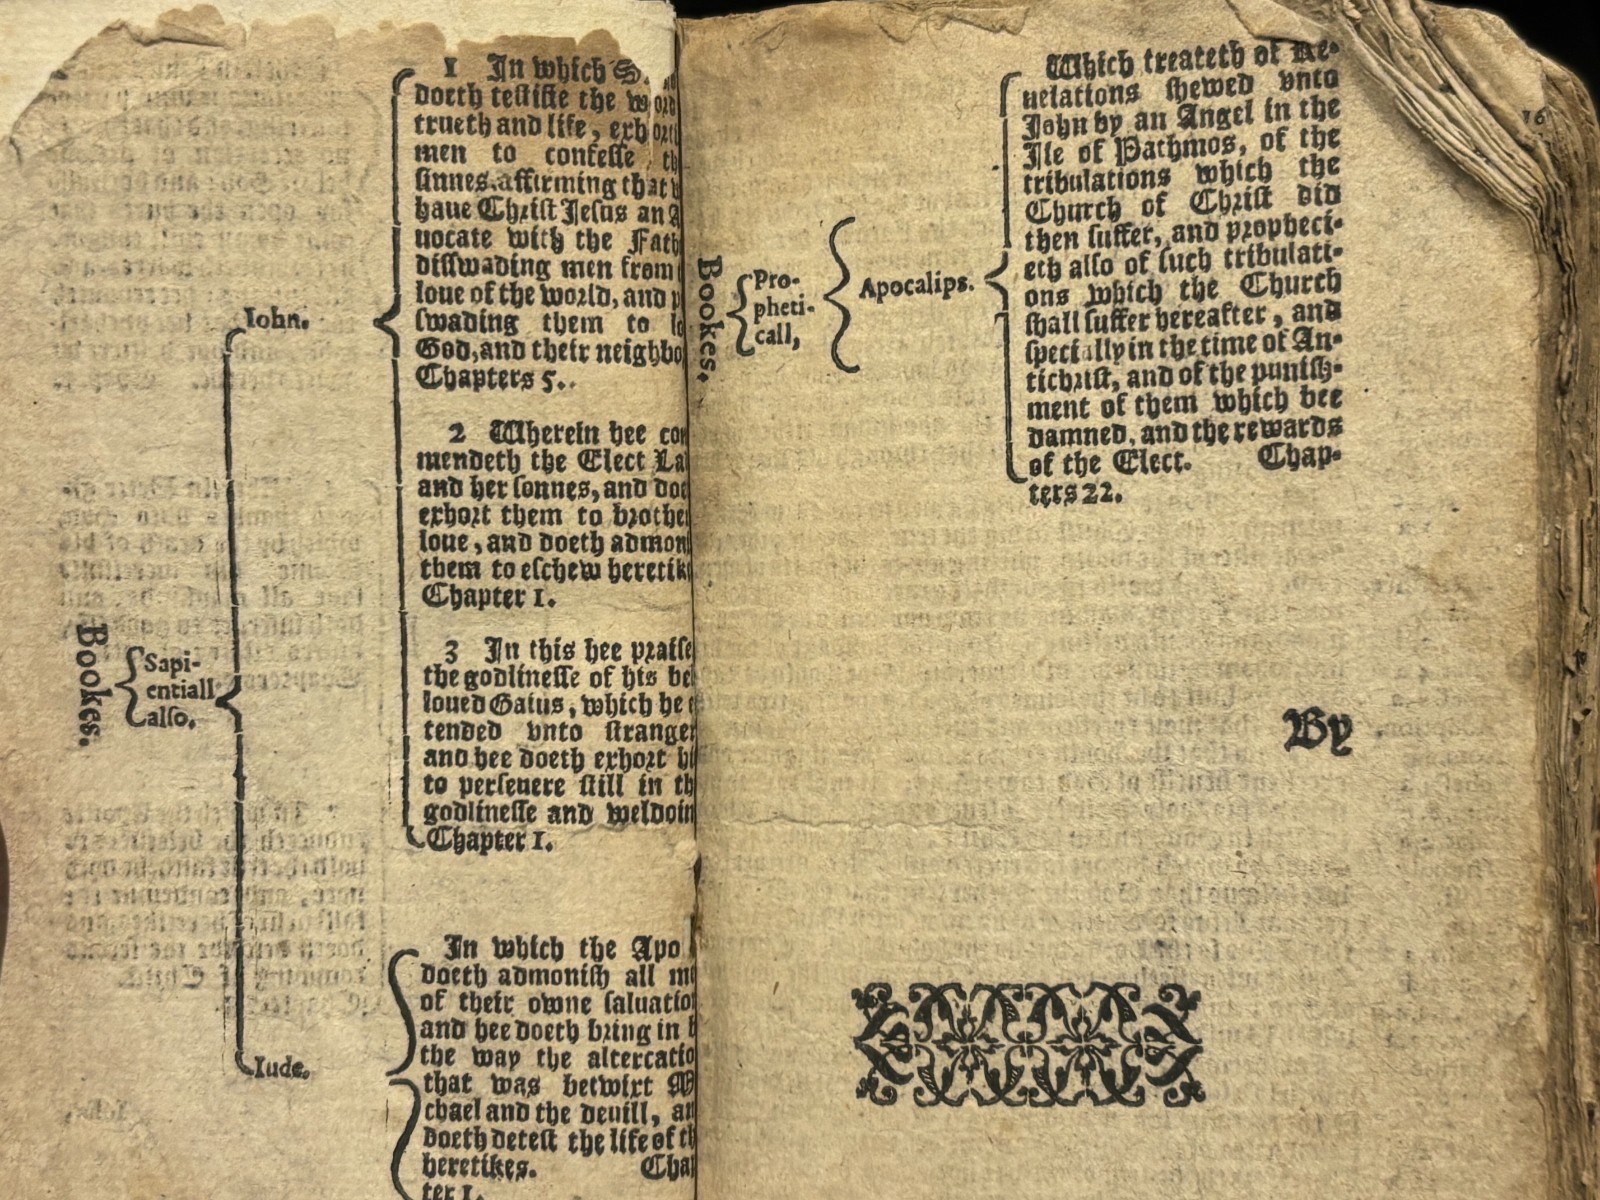 1 In which S.
doeth testifie the word
trueth and life, exhort
men to confesse
sinnes, affirming that
haue Christ Jesus an
uocate with the Fath
disswading men from
loue of the world, and
swading them to
God, and their neighbo
Chapters 5.
Iohn.
2 Wherein hee com
mendeth the Elect La
and her sonnes, and doe
exhort them to brother
loue, and doeth admoni
them to eschew heretik
Chapter 1.
3 In this hee praise
the godlinesse of his be
loued Gaius, which he
tended vnto stranger
and hee doeth exhort hi
to perseuere still in th
godlinesse and weldoin
Chapter 1.
Bookes.
Sapi-
entiall
also.
In which the Apo
doeth admonish all me
of their owne saluatio
and hee doeth bring in
the way the altercatio
that was betwixt
chael and the deuill, an
doeth detest the life of th
heretikes. Cha
ter 1.
Iude.
16
Bookes.
Pro-
pheti-
call,
Apocalips.
Which treateth of Re-
uelations shewed vnto
John by an Angel in the
Ile of Pathmos, of the
tribulations which the
Church of Christ did
then suffer, and propheci-
eth also of such tribulati-
ons which the Church
shall suffer hereafter, and
specially in the time of An-
tichrist, and of the punish-
ment of them which bee
damned, and the rewards
of the Elect. Chap-
ters 22.
By